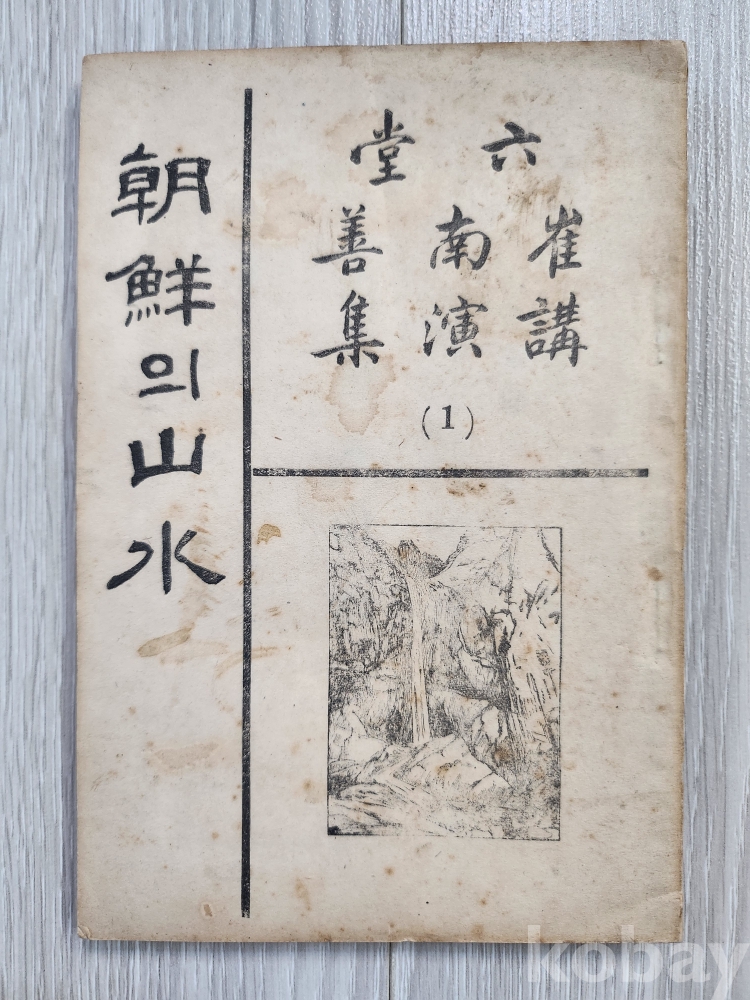 六堂
崔南善
講演集
(1)
朝鮮의山水
kobay